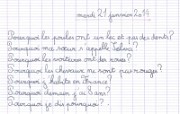 mardi 21 janvier 2014
Pourquoi les poules ont un bec et pas des dents ?
Pourquoi ma sœur s'appelle
Pourquoi les voitures ont des roues ?
Pourquoi les cheveux ne sont pas rouges ?
Pourquoi j'habite en France ?
Pourquoi demain j'ai 8 ans ?
Pourquoi je dis pourquoi ?